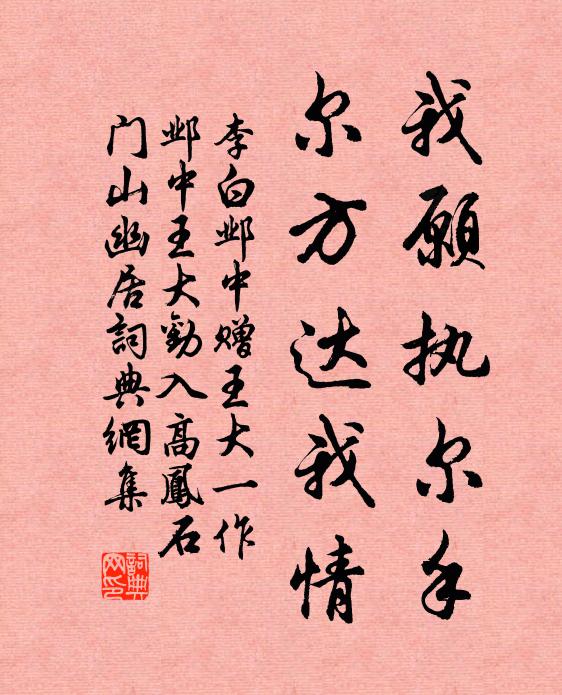 我願执尔手
尔方达我情
李白邺中赠王大一作
邺中王大勸入高鳳石
门山幽居詞典網集
詞典网印